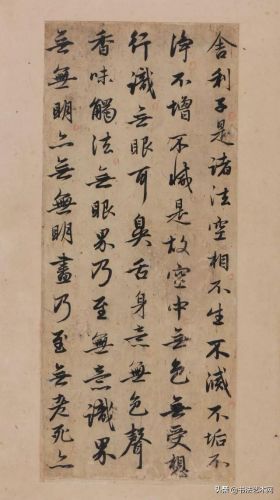 舍利子是諸法空相不生不滅不垢不
淨不增不減是故空中無色無受想
行識無眼耳鼻舌身意無色聲
香味觸法無眼界乃至無意識界
無無明亦無無明盡乃至無老死亦
头条 @书法艺术网